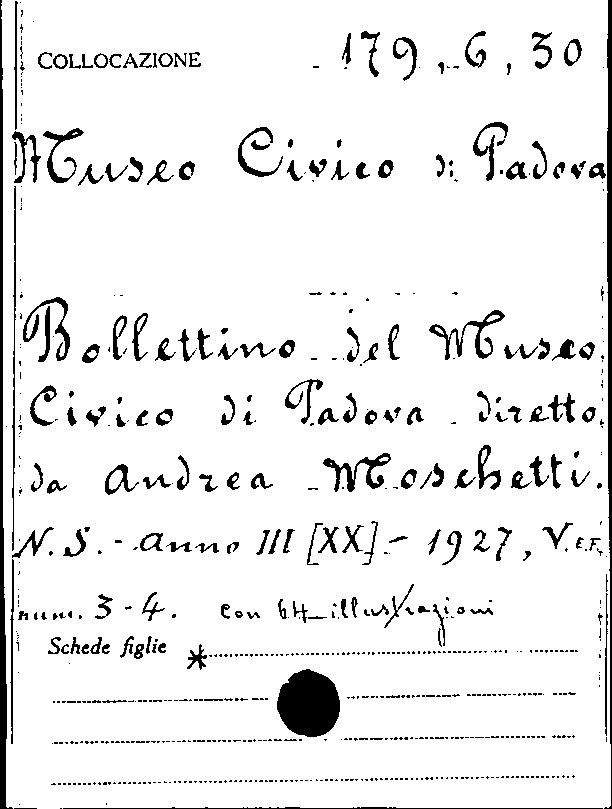 COLLOCAZIONE 179, 6, 30
Museo Civico di Padova
Bollettino del Museo
Civico di Padova diretto
da Andrea Moschetti.
N. S. - Anno III [XX] - 1927, V. E.F.
num. 3-4. con 64 illustrazioni
Schede figlie *